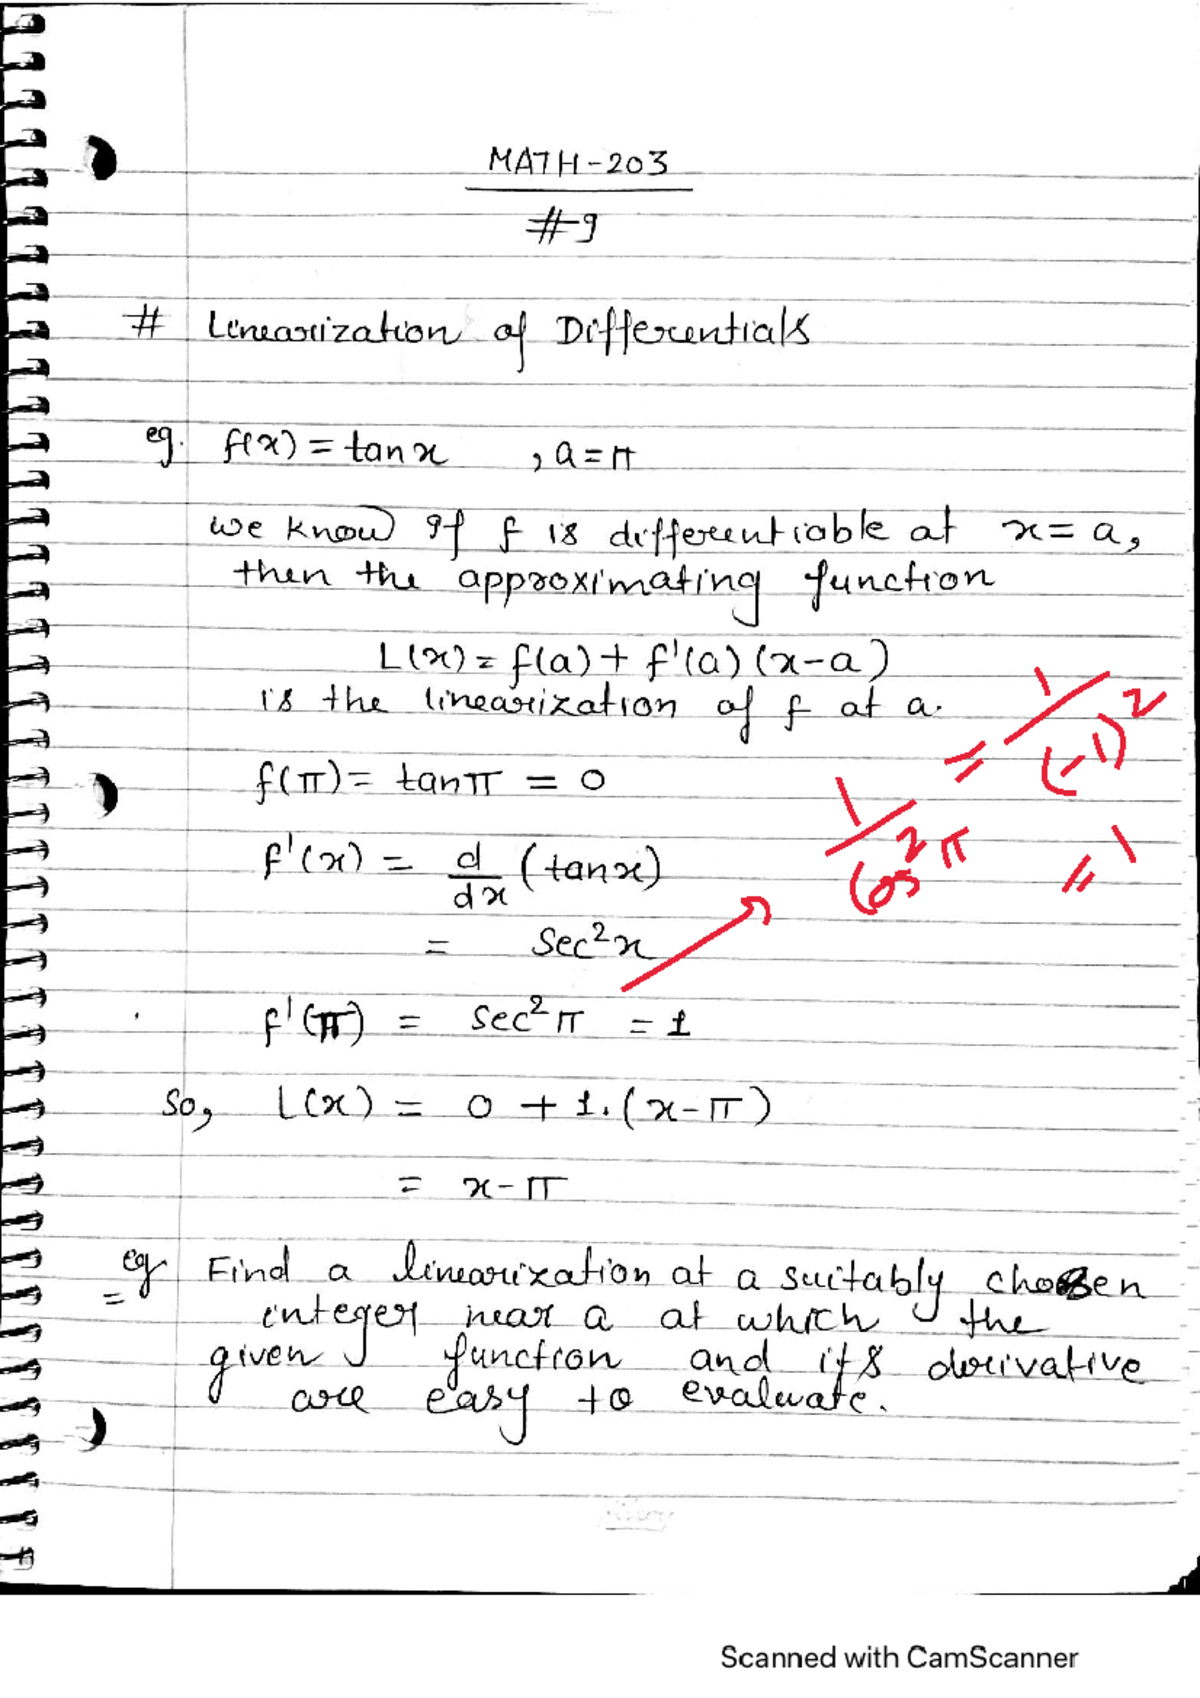 MATH-203
#9
# Linearization of Differentials
eg. f(x) = tanx , a = π
we know If f is differentiable at x = a,
then the approximating function
L(x) = f(a) + f'(a) (x-a)
is the linearization of f at a.
f(π) = tanπ = 0
f'(x) = d/dx (tanx)
= sec²x
1/cos²π = 1/(-1)²
= 1
f'(π) = sec²π = 1
So, L(x) = 0 + 1.(x-π)
= x-π
eg Find a linearization at a suitably chosen
integer near a at which the
given function and its derivative
are easy to evaluate.
Scanned with CamScanner